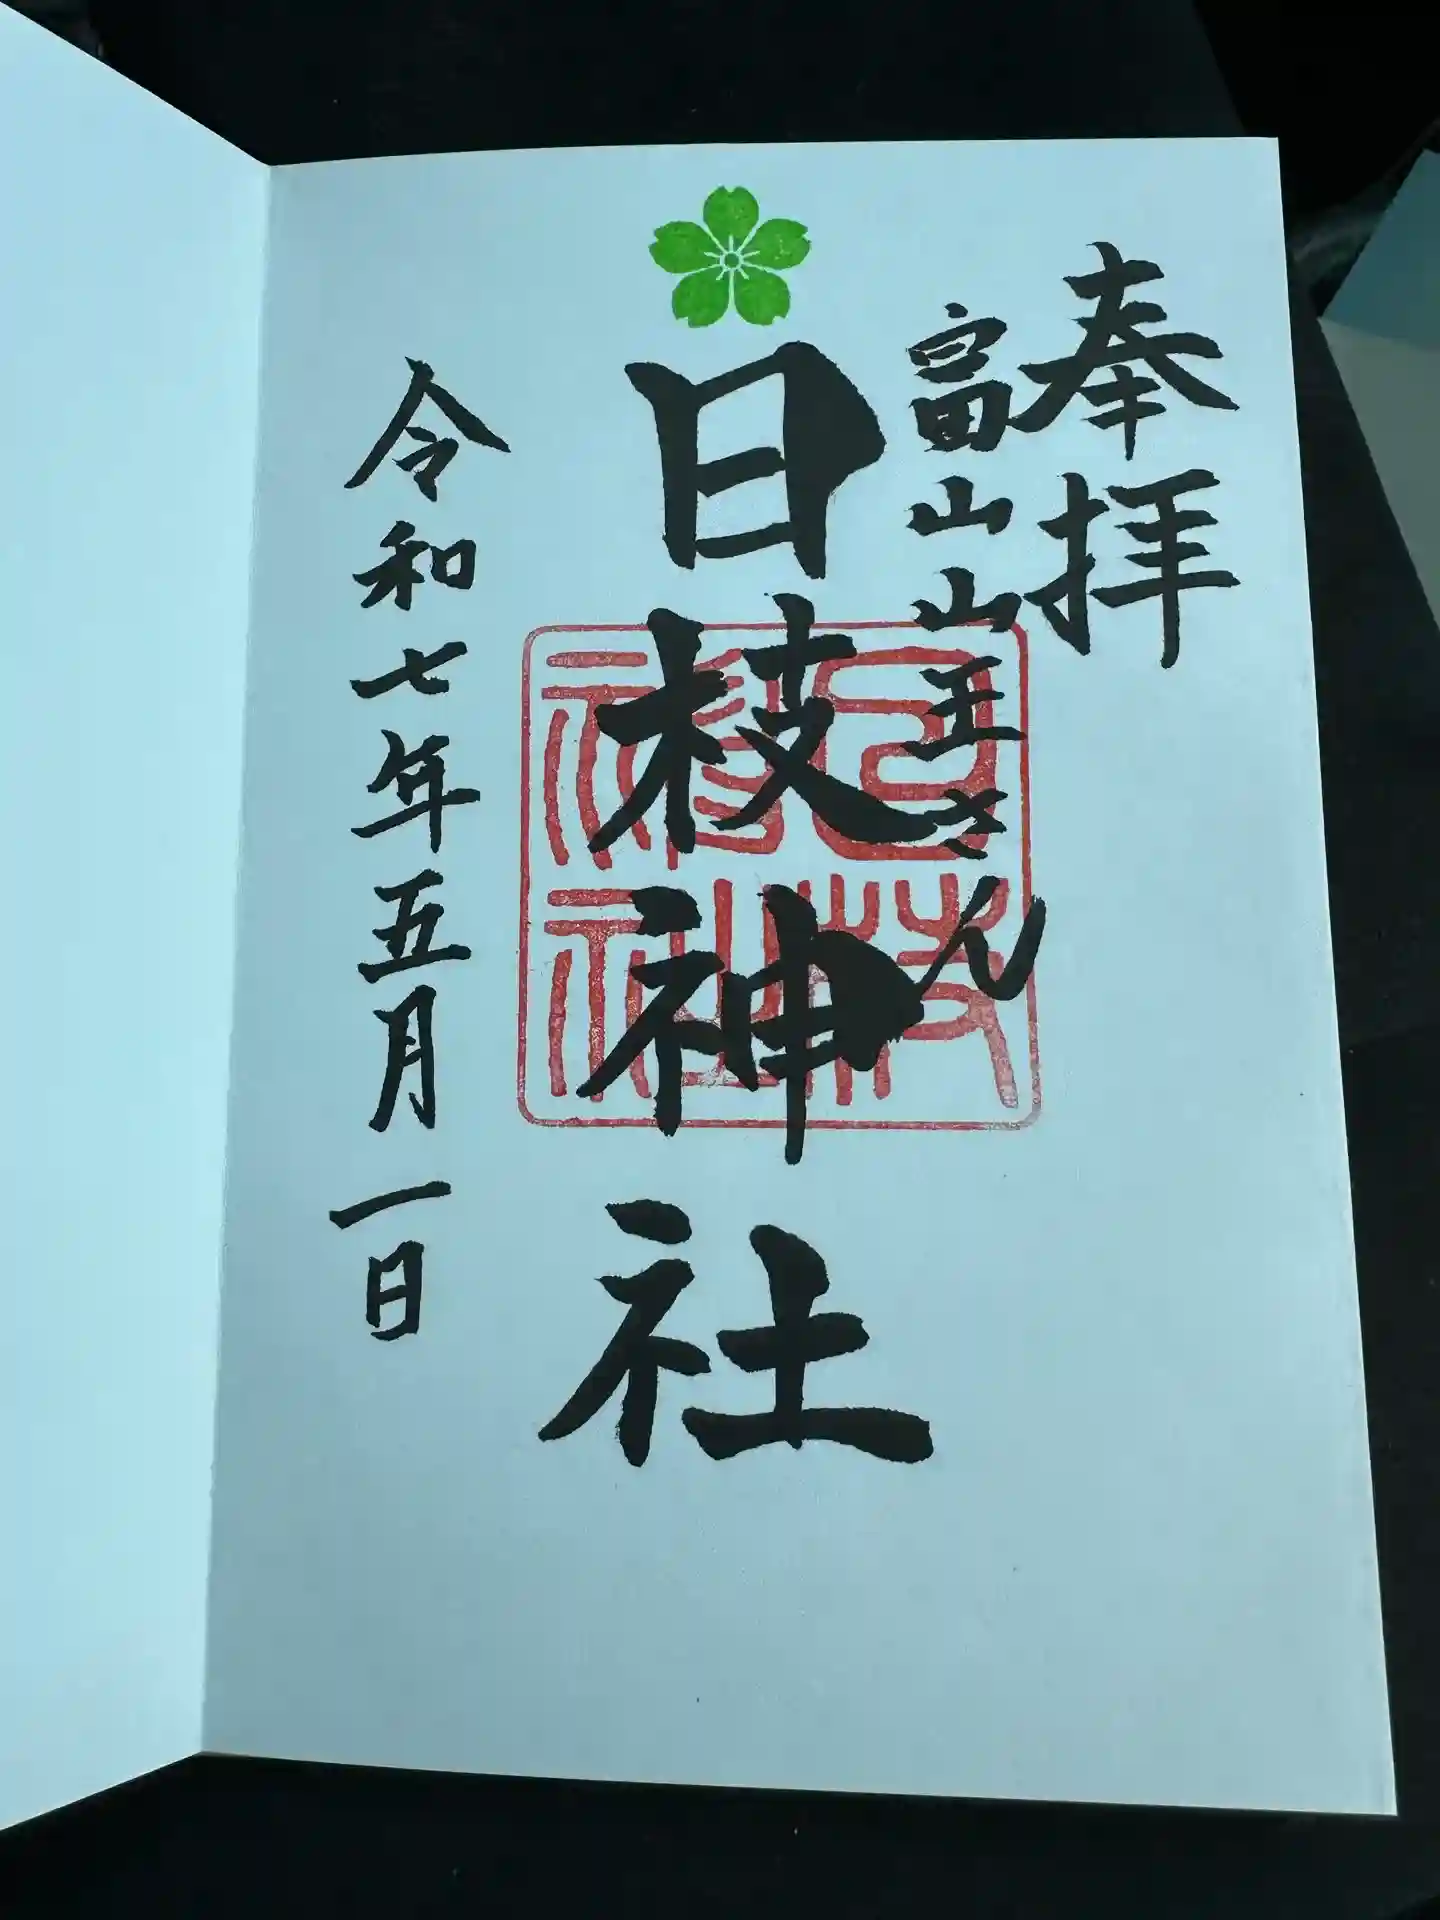 奉拝
富山山王さん
日枝神社
日枝神社
令和七年五月一日